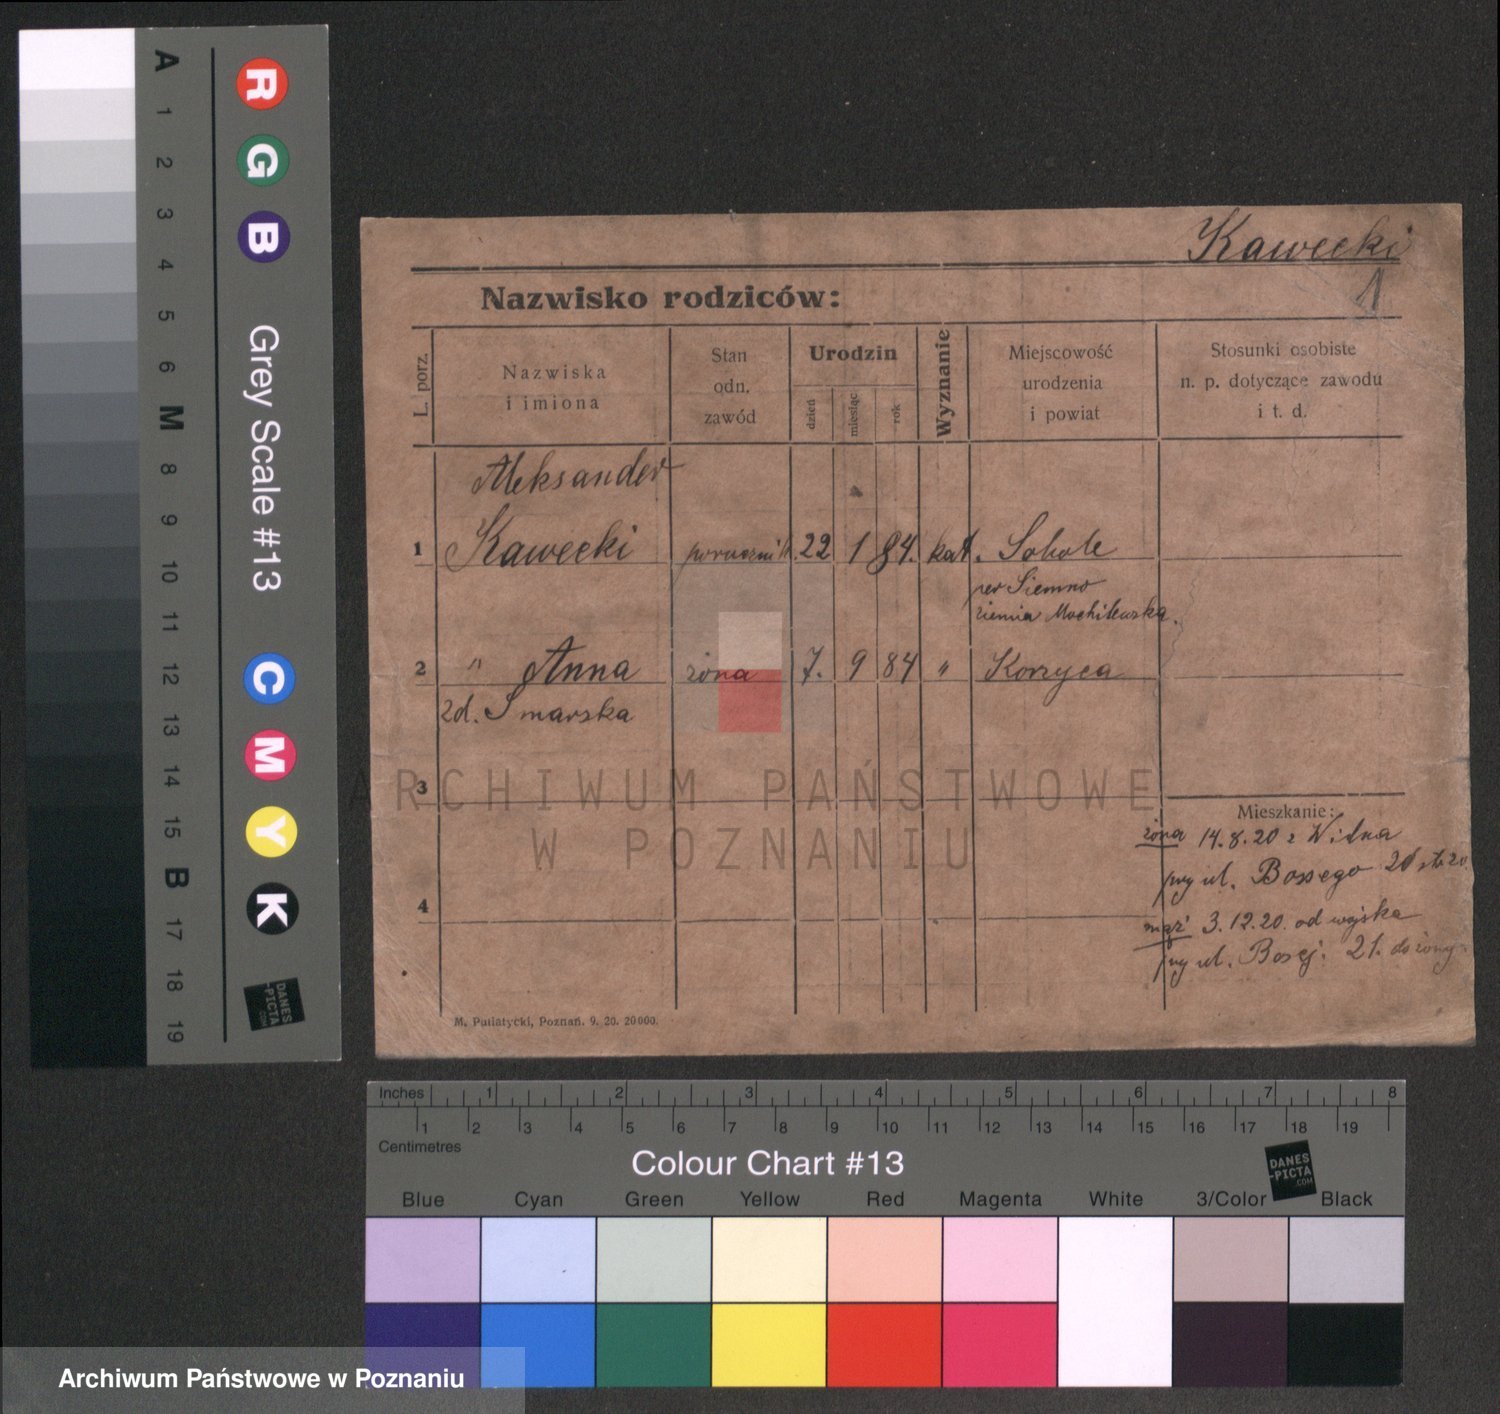 A
1
2
3
4
5
6
M
8
9
10
11
12
13
14
15
B
17
18
19
R
G
B
Grey Scale #13
C
M
Y
K
DANES
-PICTA
.COM
Kawecki
1
Nazwisko rodziców:
L. porz.
Nazwiska
i imiona
Stan
odn.
zawód
Urodzin
dzień
miesiąc
rok
Wyznanie
Miejscowość
urodzenia
i powiat
Stosunki osobiste
n. p. dotyczące zawodu
i t. d.
Aleksander
1 Kawecki porucznik 22 1 84. kat. Sokole
per Siemno
ziemia Mochilewska.
2 " Anna żona 7. 9 84 " Korzyca
zd. Smarska
3
4
Mieszkanie:
żona 14.8.20 z Wilna
przy ul. Bossego
mąż 3.12.20. od wojska
przy ul. 21. do żony
M. Putiatycki, Poznań. 9. 20. 20000.
ARCHIWUM PAŃSTWOWE
W POZNANIU
Inches 1 2 3 4 5 6 7 8
1 2 3 4 5 6 7 8 9 10 11 12 13 14 15 16 17 18 19
Centimetres
Colour Chart #13
DANES
-PICTA
.COM
Blue Cyan Green Yellow Red Magenta White 3/Color Black
Archiwum Państwowe w Poznaniu